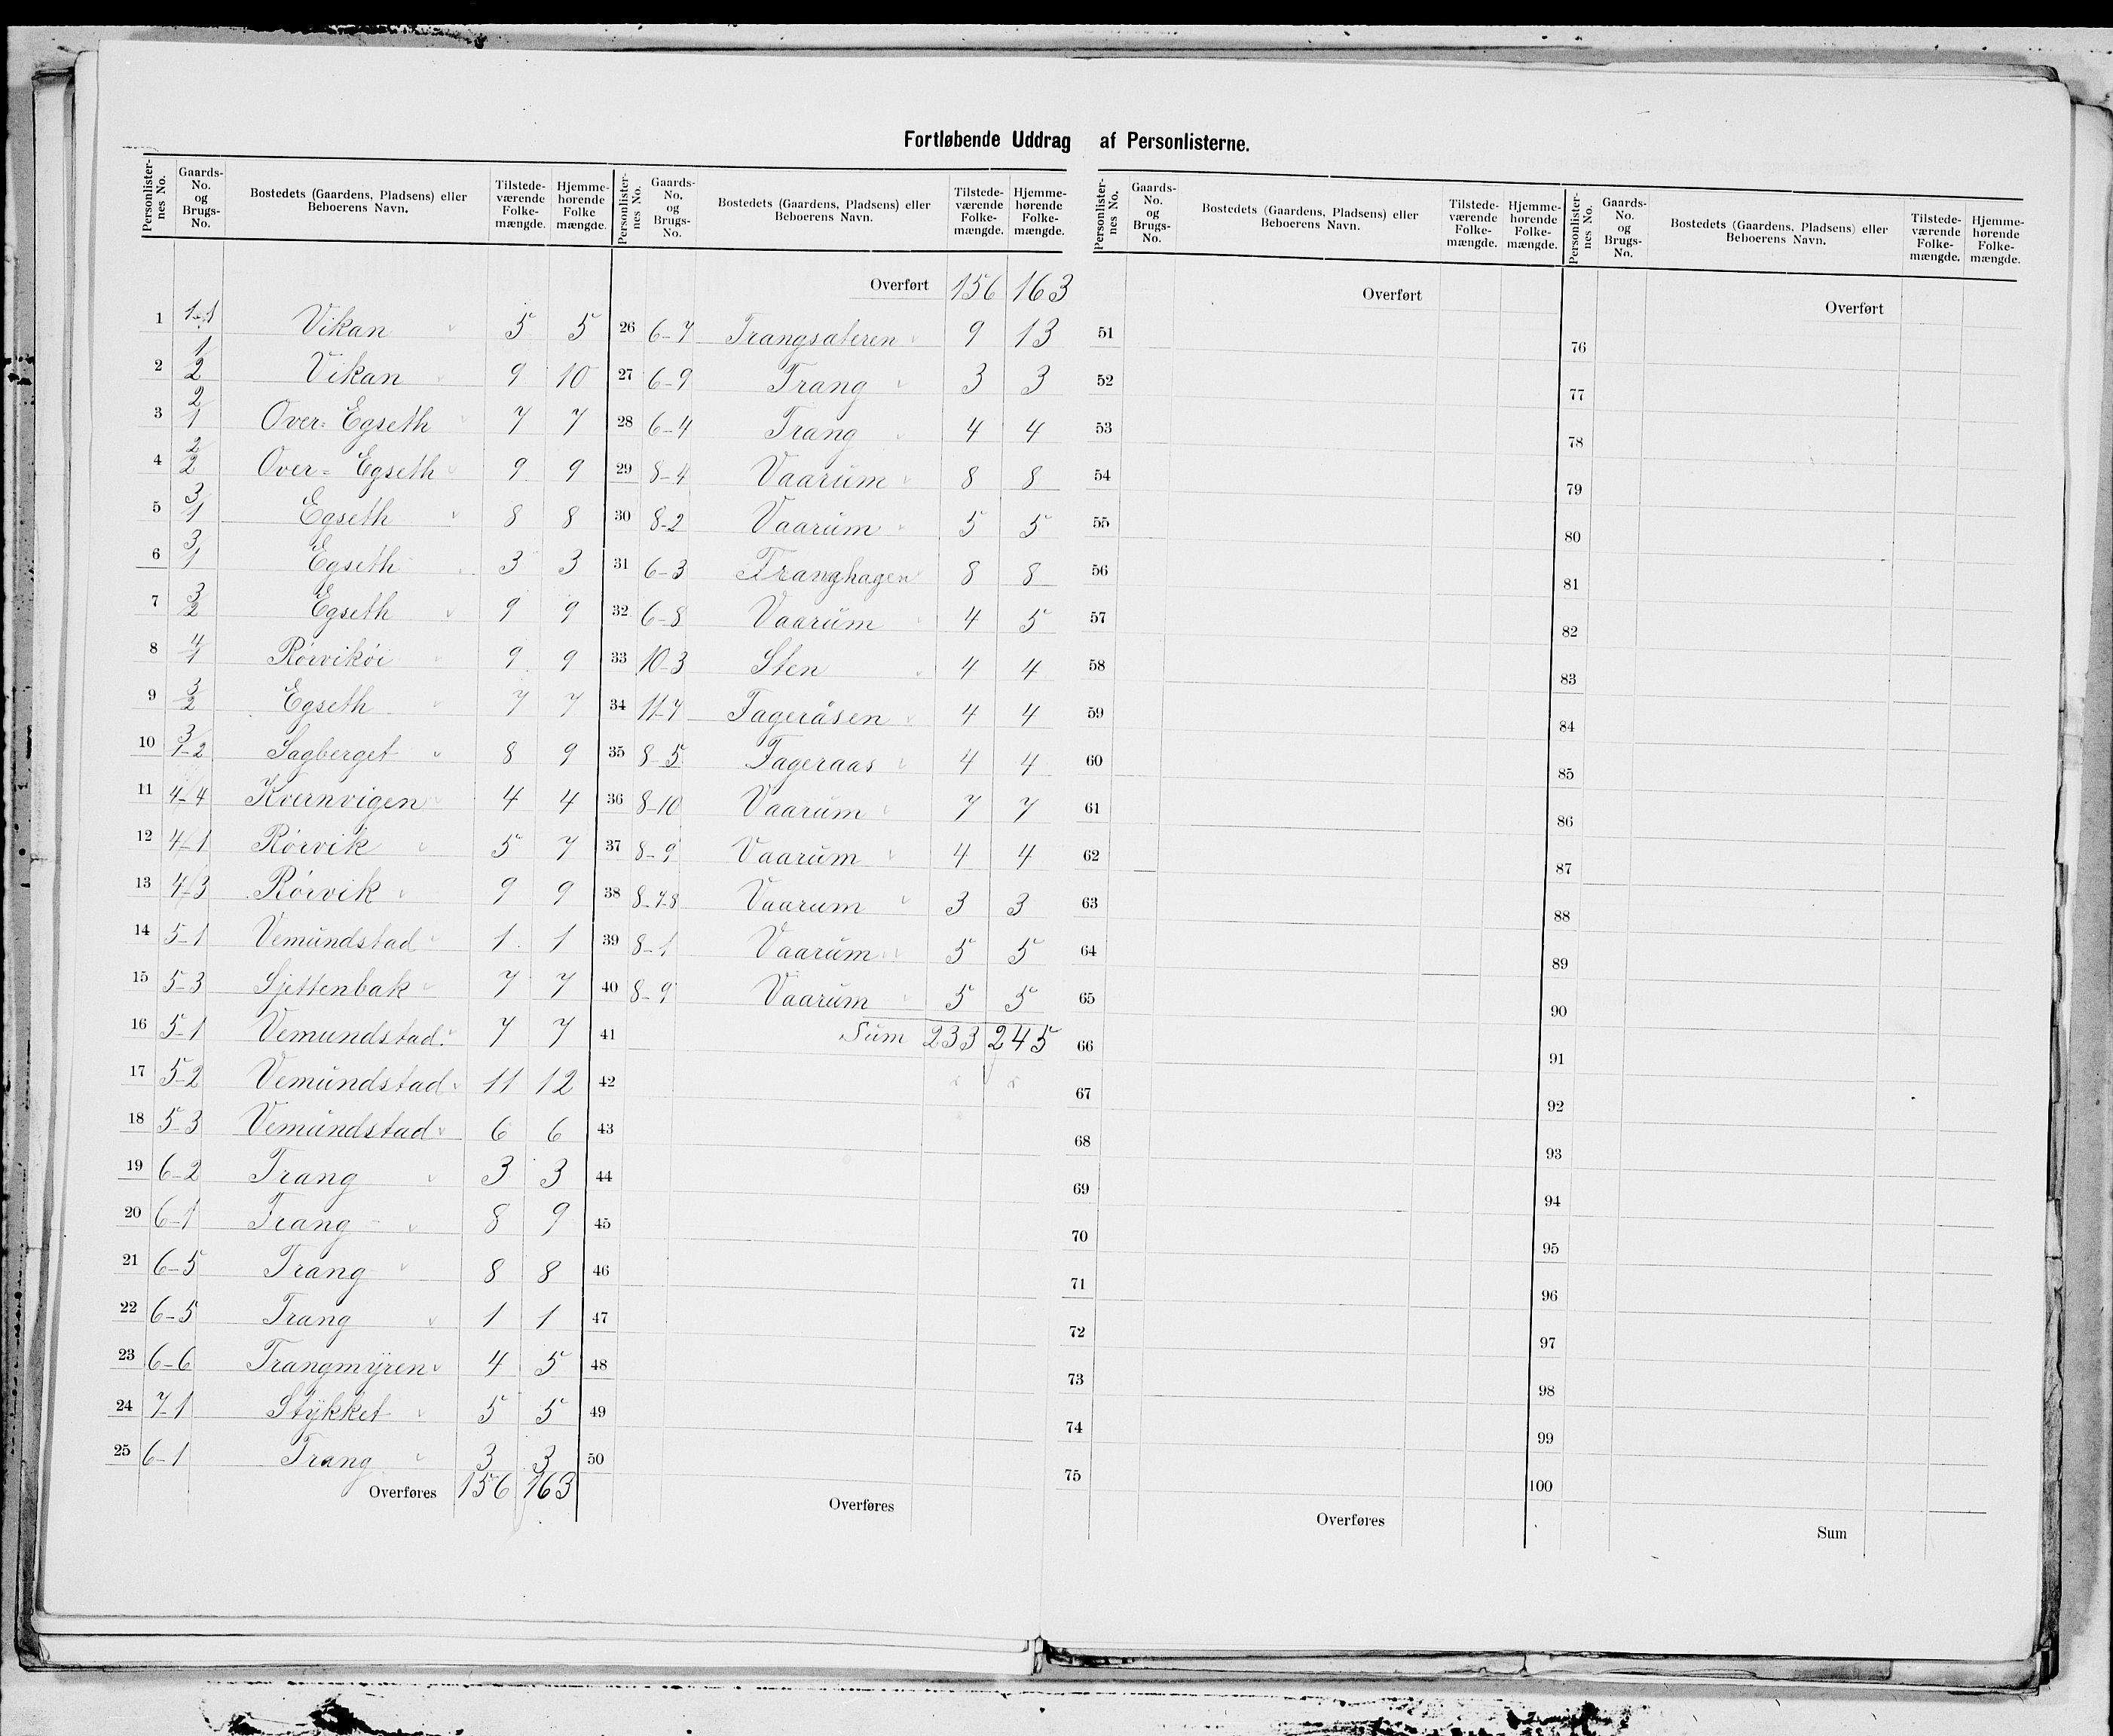 Fortløbende Uddrag af Personlisterne.
Personlister-nes No. | Gaards-No. og Brugs-No. | Bostedets (Gaardens, Pladsens) eller Beboerens Navn. | Tilstede-værende Folke-mængde. | Hjemme-hørende Folke mængde.
1 1-1 Vikan 5 5
2 1/2 Vikan 9 10
3 2/1 Over-Egseth 7 7
4 2/2 Over-Egseth 9 9
5 3/1 Egseth 8 8
6 3/1 Egseth 3 3
7 3/2 Egseth 9 9
8 4/1 Rørvikøi 9 9
9 3/2 Egseth 7 7
10 3/1-2 Sagberget 8 9
11 4-4 Kvernvigen 4 4
12 4-1 Rørvik 5 7
13 4-3 Rørvik 9 9
14 5-1 Vemundstad 1 1
15 5-3 Sjittenbak 7 7
16 5-1 Vemundstad 7 7
17 5-2 Vemundstad 11 12
18 5-3 Vemundstad 6 6
19 6-2 Trang 3 3
20 6-1 Trang 8 9
21 6-5 Trang 8 8
22 6-5 Trang 1 1
23 6-6 Trangmyren 4 5
24 7-1 Stykket 5 5
25 6-1 Trang 3 3
Overføres 156 163
Personlister-nes No. | Gaards-No. og Brugs-No. | Bostedets (Gaardens, Pladsens) eller Beboerens Navn. | Tilstede-værende Folke-mængde. | Hjemme-hørende Folke-mængde.
Overført 156 163
26 6-7 Trangsæteren 9 13
27 6-9 Trang 3 3
28 6-4 Trang 4 4
29 8-4 Vaarum 8 8
30 8-2 Vaarum 5 5
31 6-3 Tranghagen 8 8
32 6-8 Vaarum 4 5
33 10-3 Sten 4 4
34 11-7 Fageråsen 4 4
35 8-5 Fageraas 4 4
36 8-10 Vaarum 7 7
37 8-9 Vaarum 4 4
38 8-7-8 Vaarum 3 3
39 8-1 Vaarum 5 5
40 8-9 Vaarum 5 5
41 Sum 233 245
42
43
44
45
46
47
48
49
50
Overføres
Personlister-nes No. | Gaards-No. og Brugs-No. | Bostedets (Gaardens, Pladsens) eller Beboerens Navn. | Tilstede-værende Folke-mængde. | Hjemme-hørende Folke-mængde.
Overført
51
52
53
54
55
56
57
58
59
60
61
62
63
64
65
66
67
68
69
70
71
72
73
74
75
Overføres
Personlister-nes No. | Gaards-No. og Brugs-No. | Bostedets (Gaardens, Pladsens) eller Beboerens Navn. | Tilstede-værende Folke-mængde. | Hjemme-hørende Folke-mængde.
Overført
76
77
78
79
80
81
82
83
84
85
86
87
88
89
90
91
92
93
94
95
96
97
98
99
100
Sum